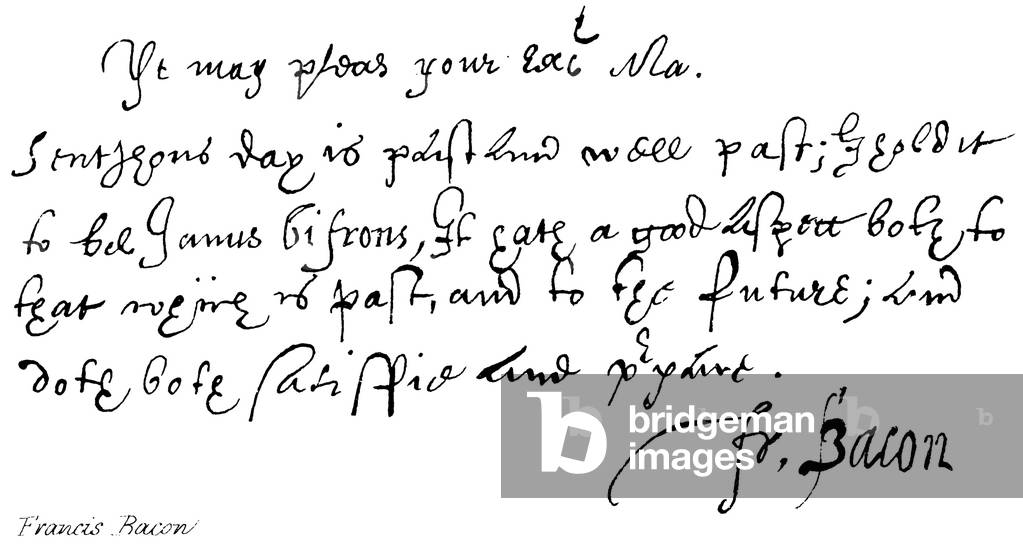 Yt may pleas your Exct Ma.
day is past and well past; I hold it
to bee Janus bifrons, It hath a good aspect both to
that which is past, and to the future; and
doth both satisfie and prepare.
Fr. Bacon
bridgeman
images
Francis Bacon